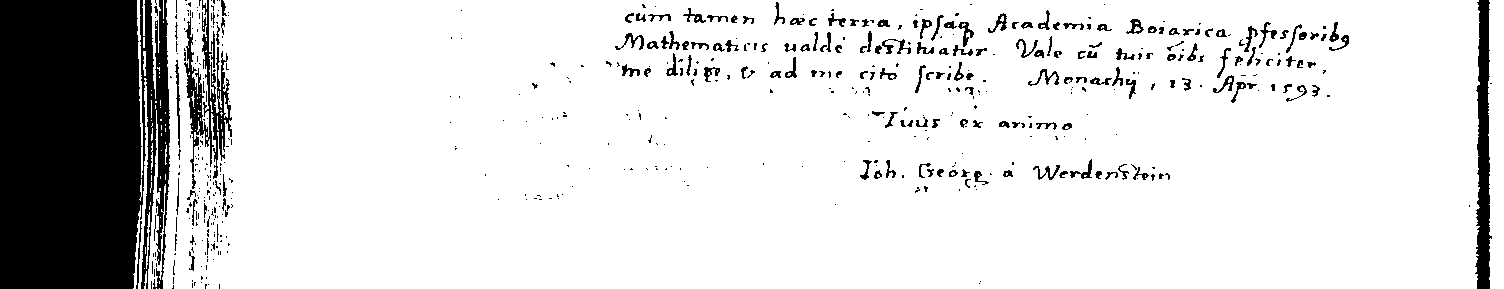 cùm tamen hæc terra, ipsaq́ꝫ Academia Boiarica ꝓfessoribꝰ
Mathematicis ualdè destituatur. Vale cũ tuis õibs feliciter,
me dilige, & ad me citò scribe. Monachij, 13. Apr. 1593.
Tuus ex animo
Ioh. Georg. à Werdenstein